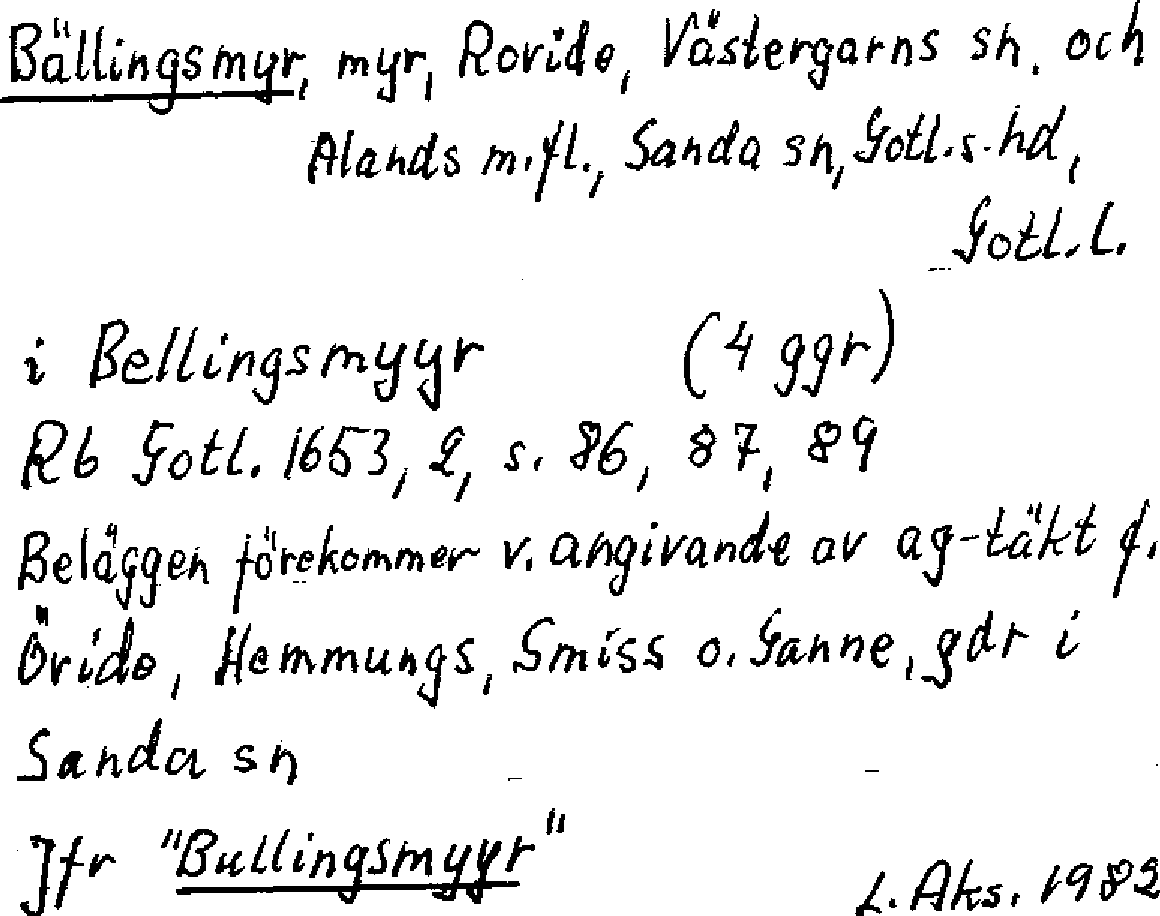 Bällingsmyr, myr, Rovide, Västergarns sn. och
Alands m.fl., Sanda sn, Gotl.s. hd,
Gotl. l.
i Bellingsmyyr (4 ggr)
Rb Gotl. 1653, 2, s. 86, 87, 89
Beläggen förekommer v. angivande av ag-täkt f.
Övide, Hemmungs, Smiss o. Ganne, gdr i
Sanda sn
Jfr "Bullingsmyyr"
L. Aks. 1982